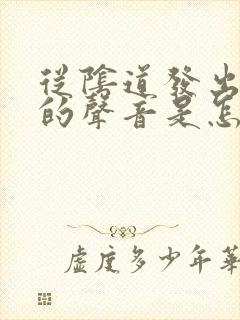 從陰道發出
的聲音是怎
虛度多少年華